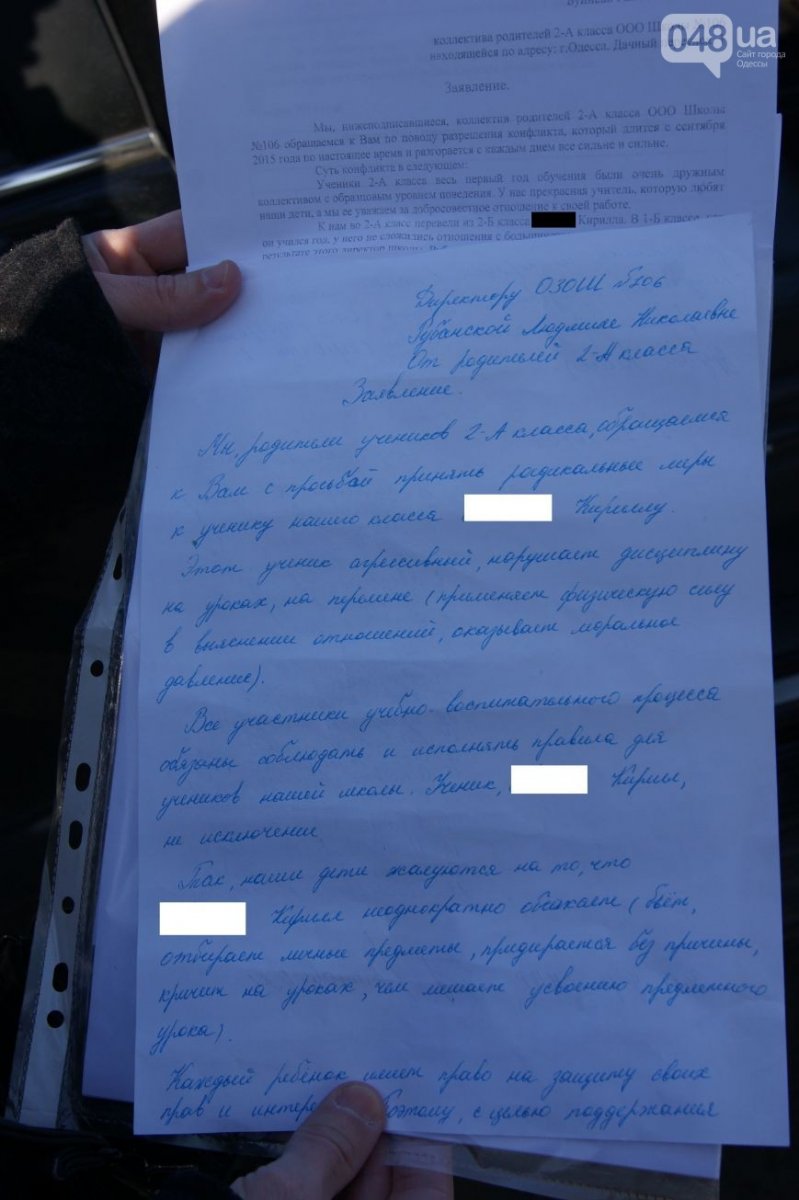 048.ua
Сайт города
Одессы
коллектива родителей 2-А класса ООО Школы
находящейся по адресу: г.Одесса. Дачный
Заявление.
Мы, нижеподписавшиеся, коллектив родителей 2-А класса ООО Школы
№106 обращаемся к Вам по поводу разрешения конфликта, который длится с сентября
2015 года по настоящее время и разгорается с каждым днем все сильне и сильне.
Суть конфликта в следующем:
Ученики 2-А класса весь первый год обучения были очень дружным
коллективом с образцовым уровнем поведения. У нас прекрасная учитель, которую любят
наши дети, а мы ее уважаем за добросовестное отношение к своей работе.
К нам во 2-А класс перевели из 2-Б класса Кирилла. В 1-Б классе, где
он учился год, у него не сложились отношения с
результате этого директор школы
Директору ОЗОШ №106
Рубанской Людмиле Николаевне
От родителей 2-А класса
Заявление.
Мы, родители учеников 2-А класса, обращаемся
к Вам с просьбой принять радикальные меры
к ученику нашего класса Кириллу.
Этот ученик агрессивный, нарушает дисциплину
на уроках, на перемене (применяет физическую силу
в выяснении отношений, оказывает моральное
давление).
Все участники учебно-воспитательного процесса
обязаны соблюдать и исполнять правила для
учеников нашей школы. Ученик, Кирилл,
не исключение.
Так, наши дети жалуются на то, что
Кирилл неоднократно обижает (бьёт,
отбирает личные предметы, придирается без причины,
кричит на уроках, чем мешает усвоению предметного
урока).
Каждый ребёнок имеет право на защиту своих
прав и Поэтому, с целью поддержания